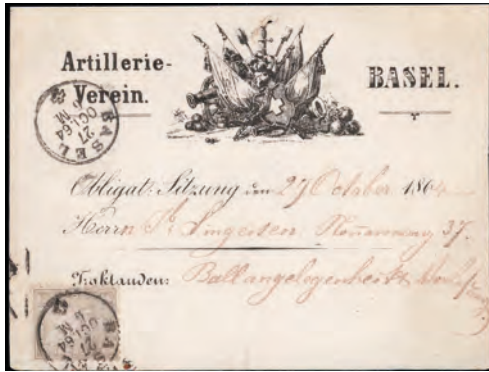 Artillerie-Verein.
BASEL.
BASEL
27 OCT. 64
6 M
Obligat: Sitzung den 27 October 1864
Herrn Singeisen, 37.
Traktanden: Ballangelegenheit
BASEL
27 OCT. 64
6 M